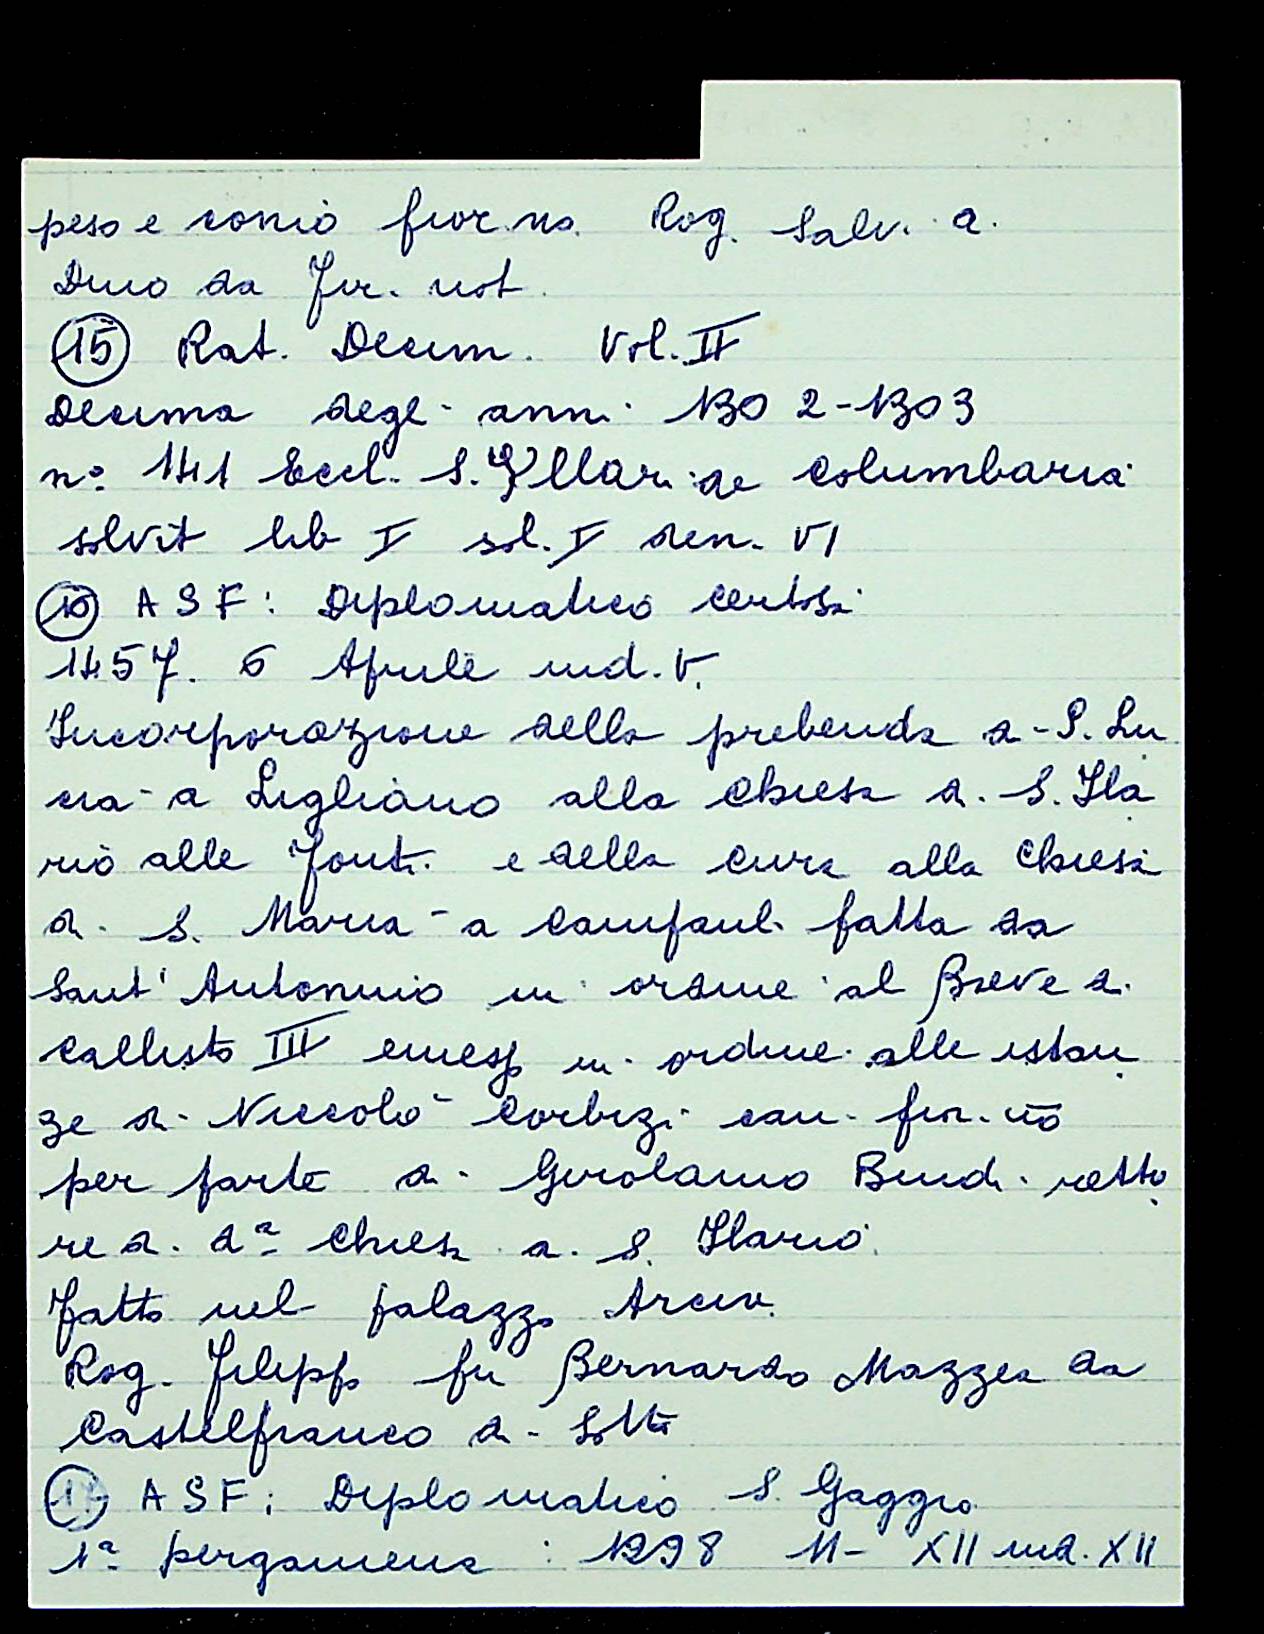 peso e conio fior.no. Rog. Salv. di
Dino da Fir. not.
15 Rat. Decim. Vol. II
Decima degl. anni 1302-1303
n° 141 Eccl. S. Yllari de Columbaria
solvit lib I sol. I den. VI
ASF: Diplomatico Certosa
1457. 6 Aprile ind. V.
Incorporazione della prebenda di S. Lu
cia a Ligliano alla Chiesa di S. Ila
rio alle Fonti e della cura alla Chiesa
di S. Maria a Campoli fatta da
Sant'Antonino in ordine al Breve di
Callisto III emesso in ordine alle istan
ze di Niccolò Corbizi can. fior.no
per parte di Girolamo Bindi retto
re di da Chiesa di S. Ilario.
Fatto nel palazzo Arciv.
Rog. Filippo fu Bernardo Mazzei da
Castelfranco di Sotto
ASF: Diplomatico S. Gaggio
1a pergamena: 1298 11-XII ind. XII